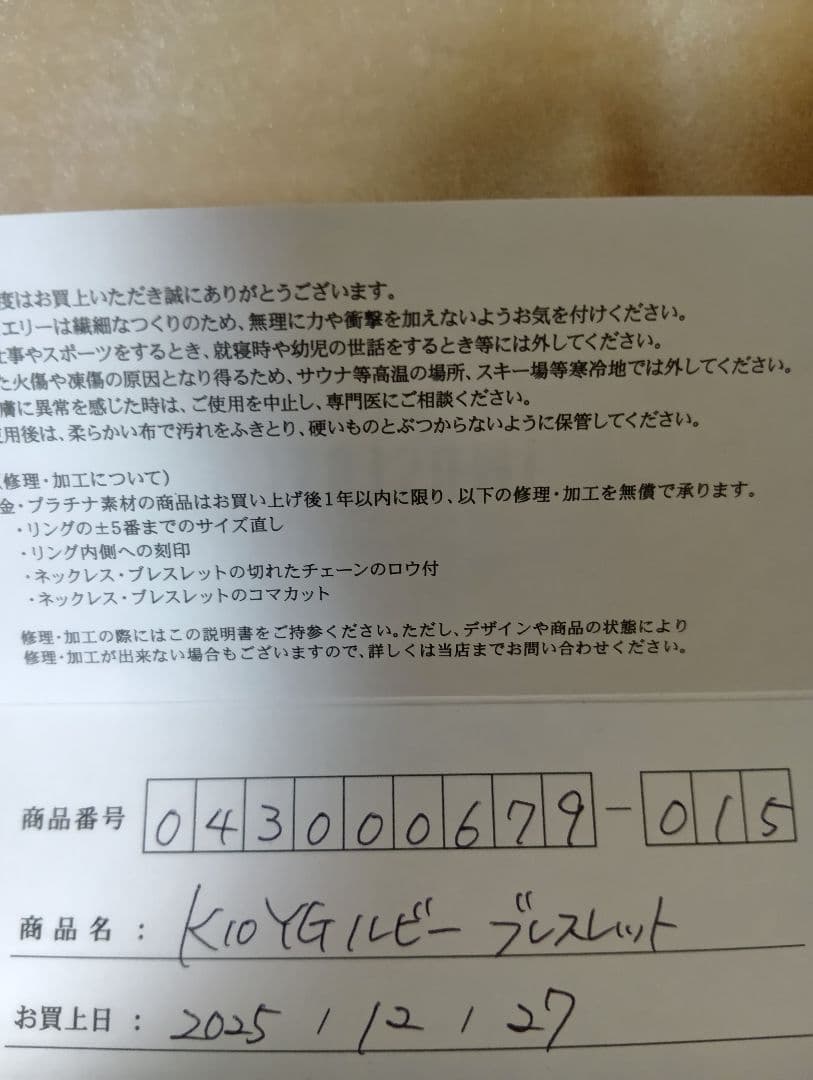 度はお買上いただき誠にありがとうございます。
エリーは繊細なつくりのため、無理に力や衝撃を加えないようお気を付けください。
仕事やスポーツをするとき、就寝時や幼児の世話をするとき等には外してください。
た火傷や凍傷の原因となり得るため、サウナ等高温の場所、スキー場等寒冷地では外してください。
膚に異常を感じた時は、ご使用を中止し、専門医にご相談ください。
使用後は、柔らかい布で汚れをふきとり、硬いものとぶつからないように保管してください。
(修理・加工について)
金・プラチナ素材の商品はお買い上げ後1年以内に限り、以下の修理・加工を無償で承ります。
・リングの±5番までのサイズ直し
・リング内側への刻印
・ネックレス・ブレスレットの切れたチェーンのロウ付
・ネックレス・ブレスレットのコマカット
修理・加工の際にはこの説明書をご持参ください。ただし、デザインや商品の状態により
修理・加工が出来ない場合もございますので、詳しくは当店までお問い合わせください。
商品番号 043000679-015
商品名: K10YGルビー ブレスレット
お買上日: 2025/12/27